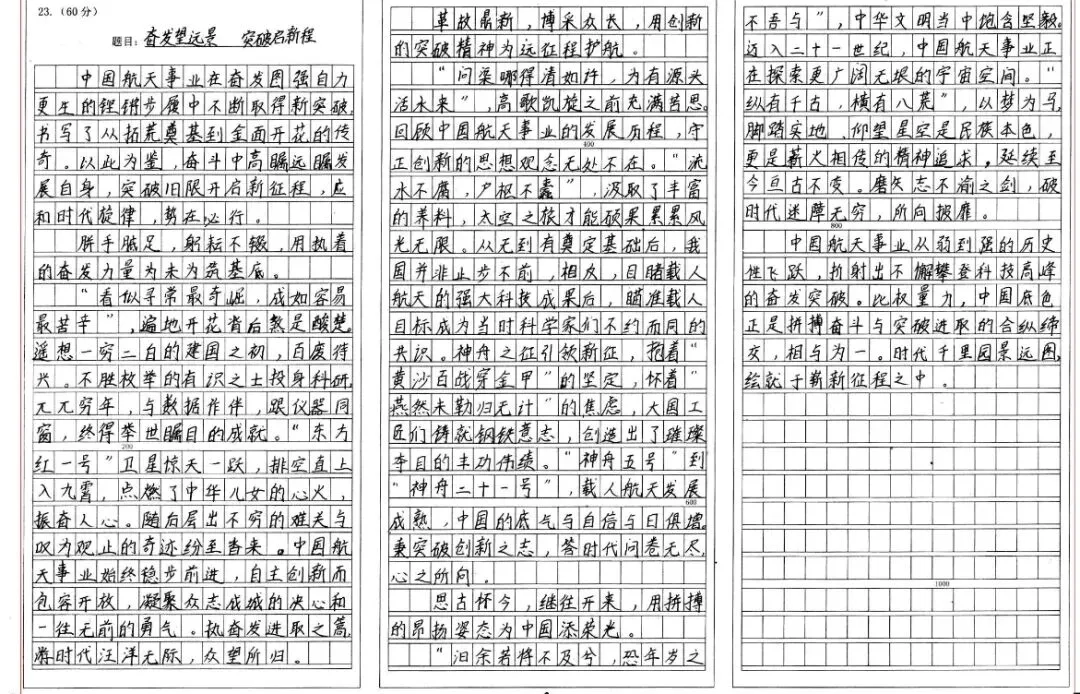 23.（60分）
题目：奋发望远景 突破启新程
中国航天事业在奋发图强自力
更生的铿锵步履中不断取得新突破，
书写了从拓荒奠基到全面开花的传
奇。以此为鉴，奋斗中高瞩远瞩发
展自身，突破旧限开启新征程，应
和时代旋律，势在必行。
胼手胝足，躬耘不辍，用执着
的奋发力量为未为筑基底。
“看似寻常最奇崛，成如容易
最苦辛”，遍地开花背后煞是酸楚。
遥想一穷二白的建国之初，百废待
兴。不胜枚举的有识之士投身科研，
兀兀穷年，与数据作伴，跟仪器同
窗，终得举世瞩目的成就。“东方
200
红一号”卫星惊天一跃，排空直上
入九霄，点燃了中华儿女的心火，
振奋人心。随后层出不穷的难关与
叹为观止的奇迹纷至沓来。中国航
天事业始终稳步前进，自主创新而
包容开放，凝聚众志成城的决心和
一往无前的勇气。执奋发进取之篙，
游时代汪洋无际，众望所归。
革故鼎新，博采众长，用创新
的突破精神为远征程护航。
“问渠哪得清如许，为有源头
活水来”，高歌凯旋之前充满苦思。
回顾中国航天事业的发展历程，守
400
正创新的思想观念无处不在。“流
水不腐，户枢不蠹”，汲取了丰富
的养料，太空之旅才能硕果累累风
光无限。从无到有奠定基础后，我
国并非止步不前，相反，目睹载人
航天的强大科技成果后，瞄准载人
目标成为当时科学家们不约而同的
共识。神舟之征引领新征，抱着“
黄沙百战穿金甲”的坚定，怀着“
燕然未勒归无计”的焦虑，大国工
匠们铸就钢铁意志，创造出了璀璨
夺目的丰功伟绩。“神舟五号”到
“神舟二十一号”，载人航天发展
600
成熟，中国的底气与自信与日俱增。
秉突破创新之志，答时代问卷无尽，
心之所向。
思古怀今，继往开来，用拼搏
的昂扬姿态为中国添荣光。
“汩余若将不及兮，恐年岁之
不吾与”，中华文明当中饱含坚毅。
迈入二十一世纪，中国航天事业正
在探索更广阔无垠的宇宙空间。“
纵有千古，横有八荒”，以梦为马，
脚踏实地，仰望星空是民族本色，
更是薪火相传的精神追求。延续至
今亘古不变。磨矢志不渝之剑，破
时代迷障无穷，所向披靡。
800
中国航天事业从弱到强的历史
性飞跃，折射出不懈攀登科技高峰
的奋发突破。比权量力，中国底色
正是拼搏奋斗与突破进取的合纵缔
交，相与为一。时代千里园景远图，
绘就于崭新征程之中。
1000